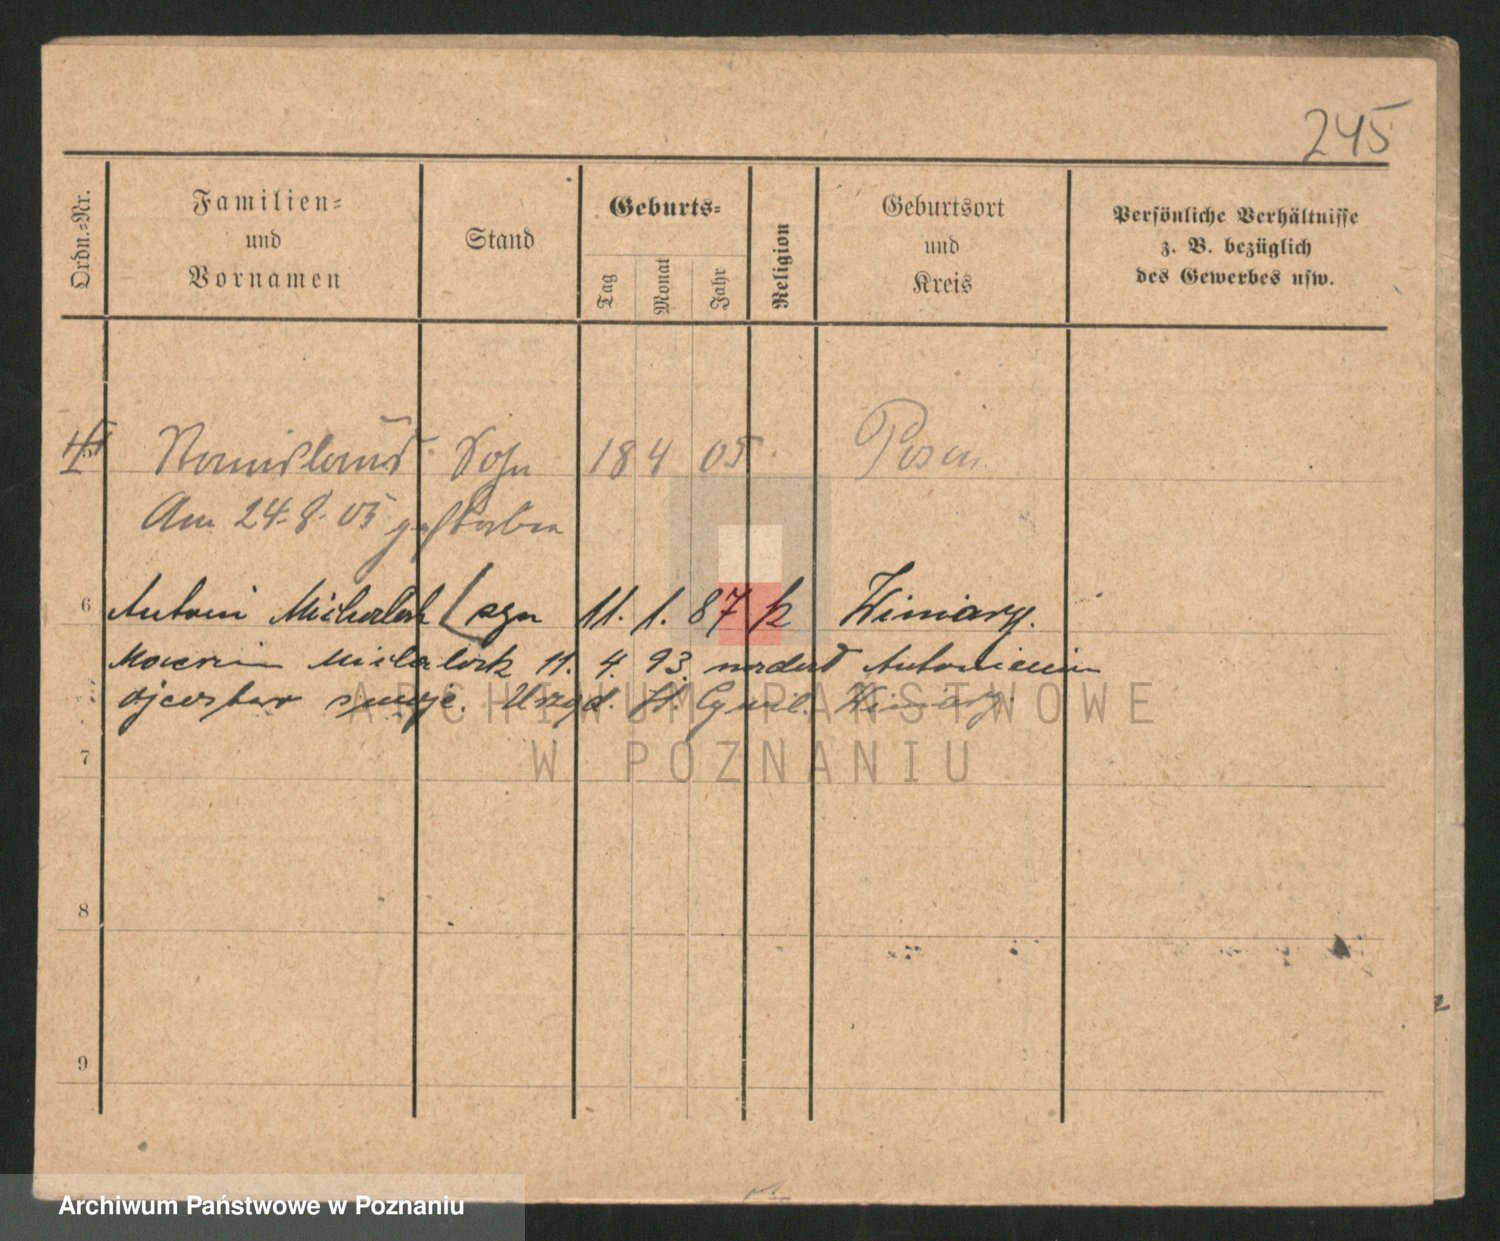 245
Ordn.-Nr.
Familien-
und
Vornamen
Stand
Geburts-
Tag
Monat
Jahr
Religion
Geburtsort
und
Kreis
Persönliche Verhältnisse
z. B. bezüglich
des Gewerbes usw.
Stanislaus Sohn 18 4 05. Posen
Am 24.8.05 gestorben
6 Antoni Michalak syn 11. 1. 87 k Winiary.
Michalak 11. 4. 93
Winiary.
7
8
9
ARCHIWUM PAŃSTWOWE
W POZNANIU
Archiwum Państwowe w Poznaniu